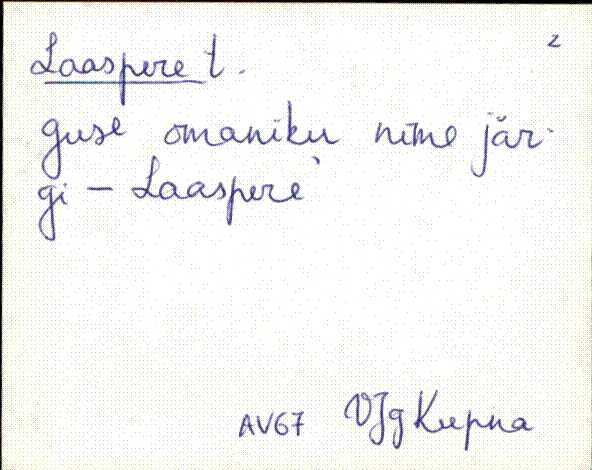 Laaspere t. 2
guse omaniku nime jär-
gi – Laaspere`
AV67 VJg Kupna